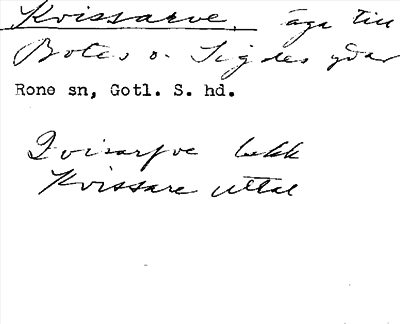 Kvissarve, äga till
Botes o. Sigdes gdar
Rone sn, Gotl. S. hd.
Qvisarfve bekk
Kvissare uttal